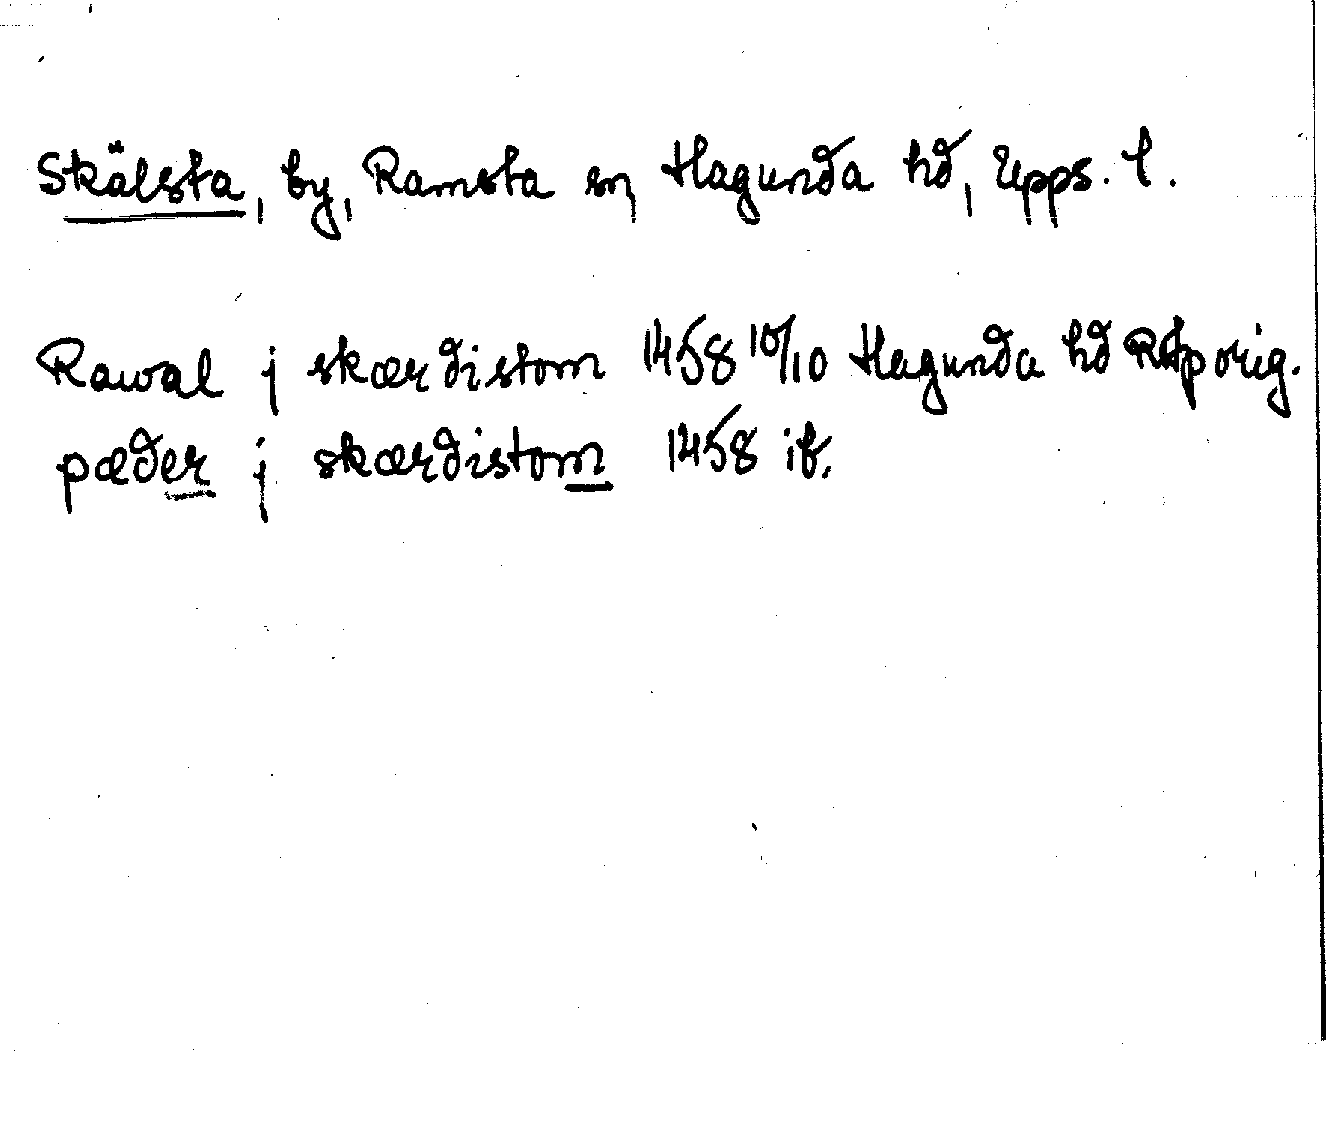 Skälsta, by, Ramsta sn Hagunda hd, Upps. l.
Rawal j skærdistom 1458 10/10 Hagunda hd RAp orig.
pæder j skærdistom 1458 ib.